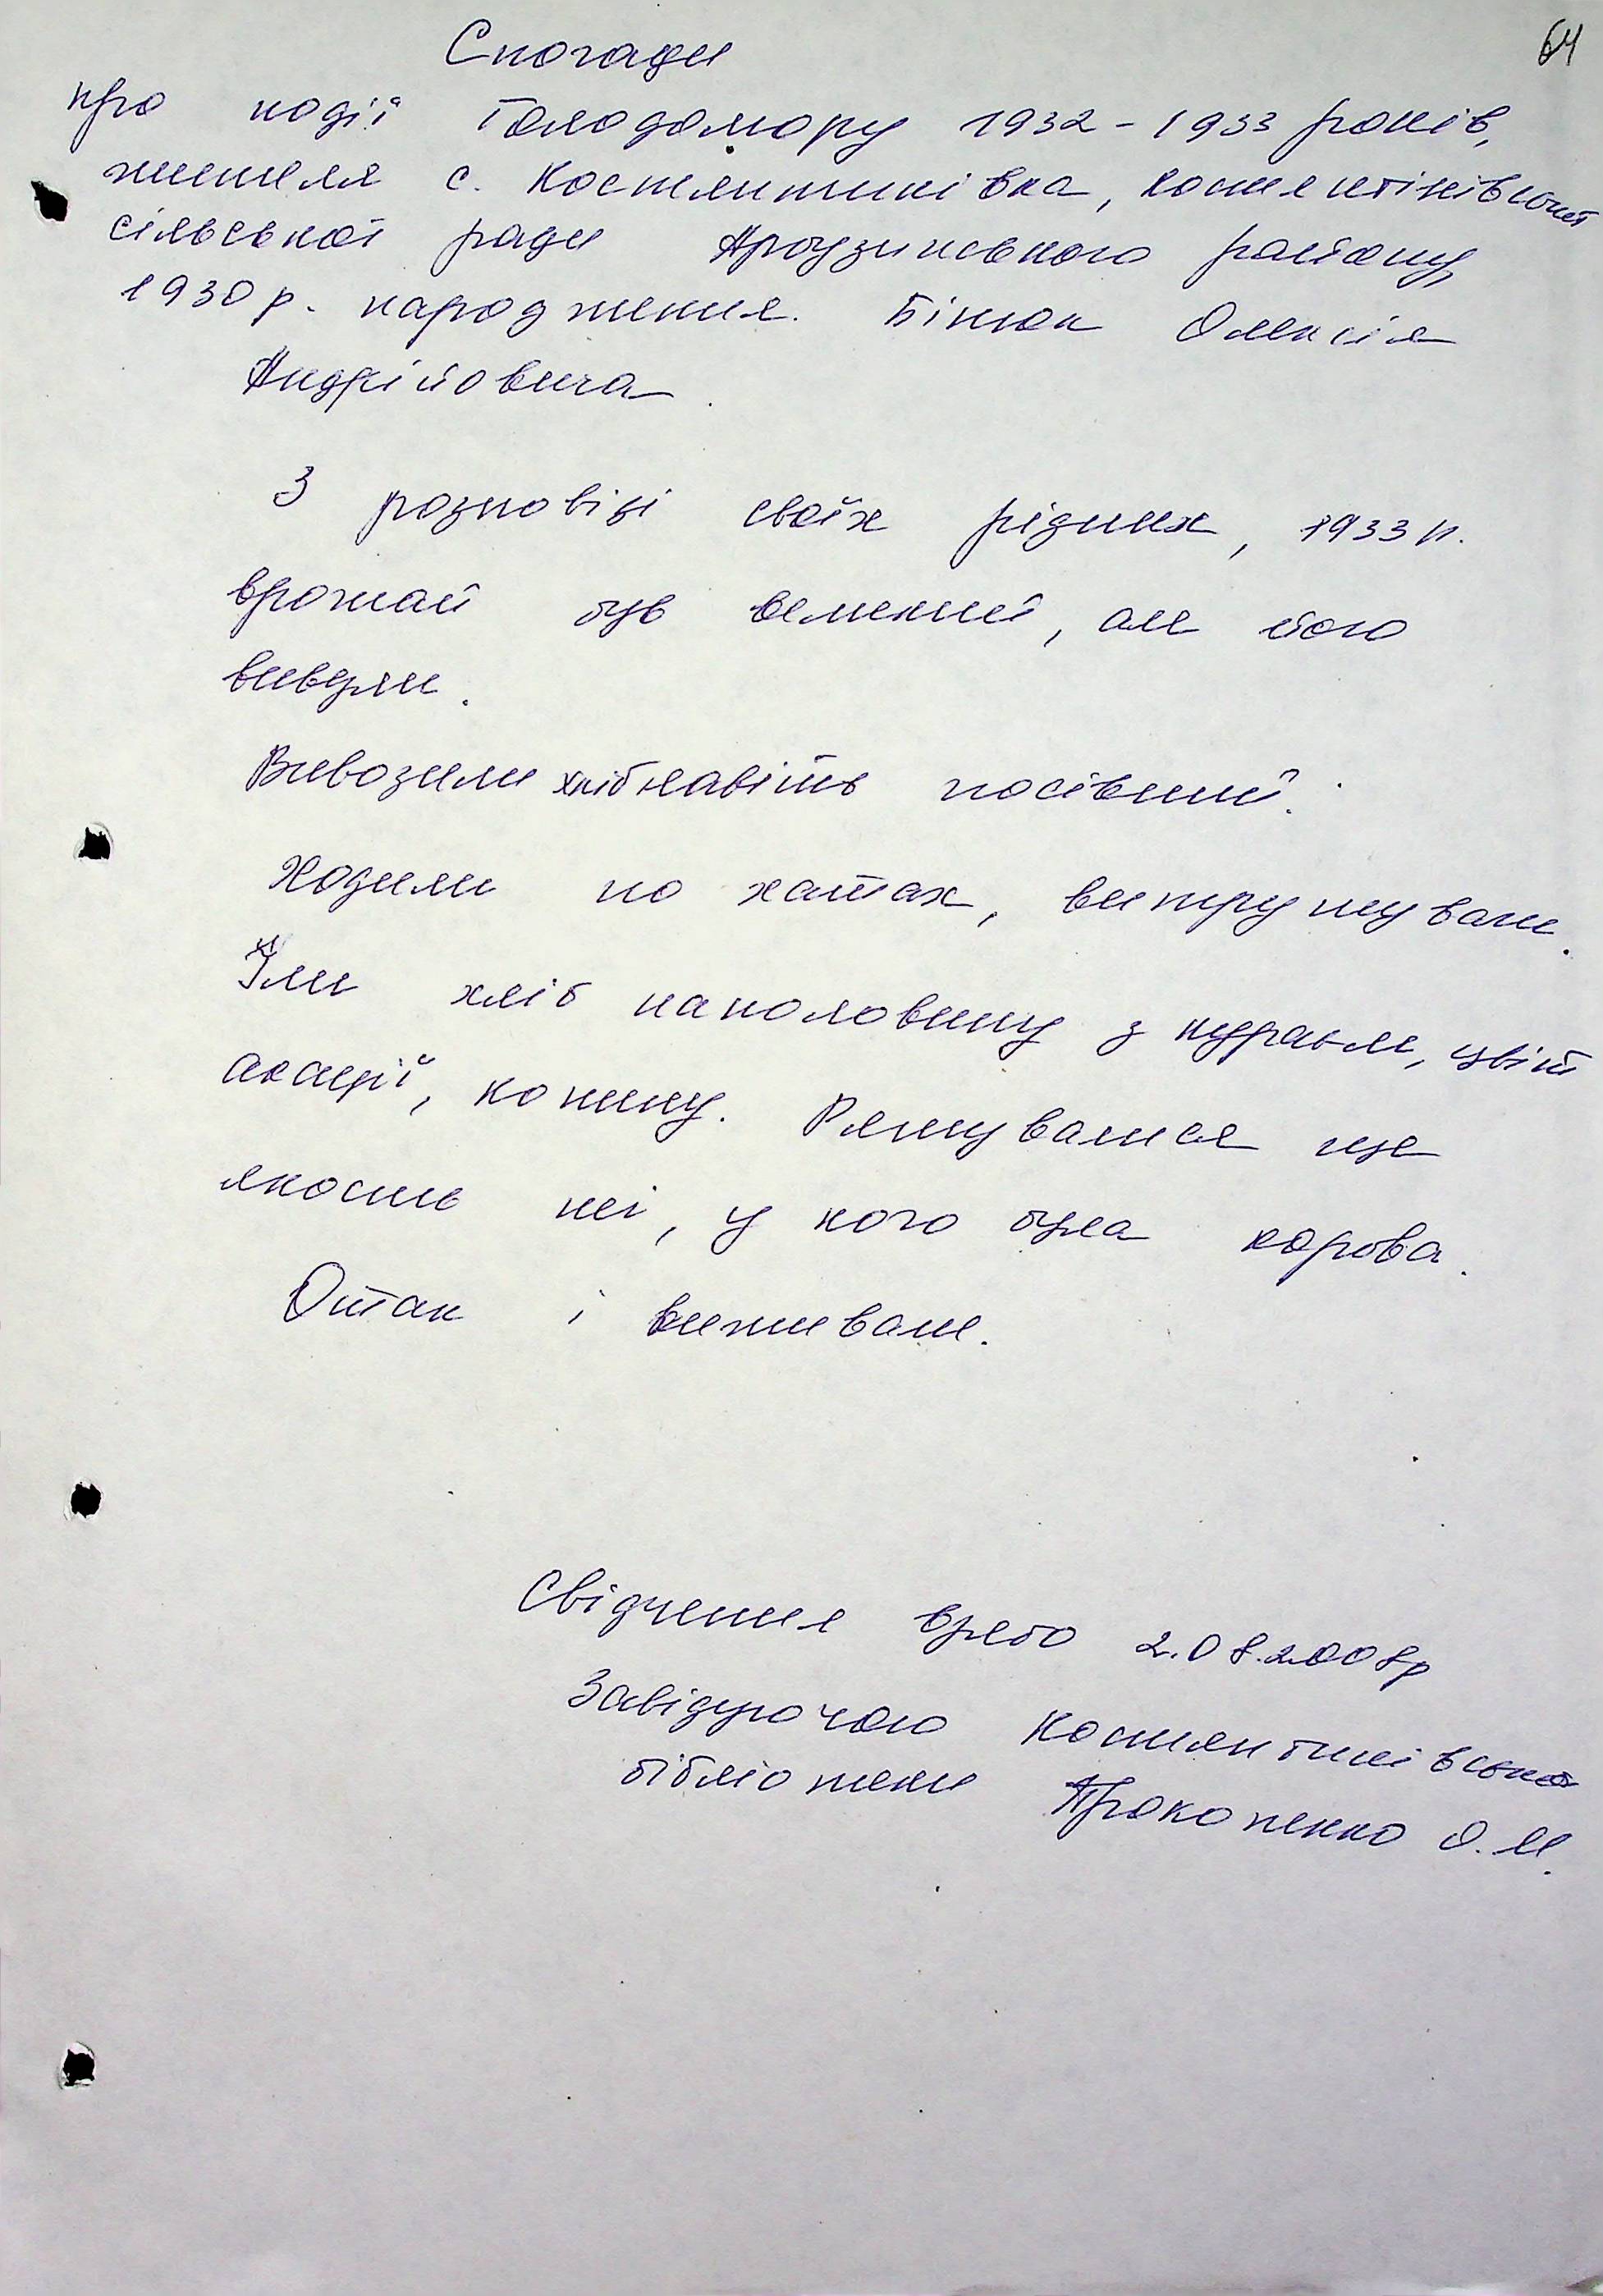 64
Спогади
про події Голодомору 1932-1933 років,
жителя с. Костянтинівка, Костянтинівської
сільської ради Арбузинського району,
1930 р. народження. Бінюк Олексія
Андрійовича.
З розповіді своїх рідних, 1933 р.
врожай був великий, але його
вивезли.
Вивозили хліб навіть посівний.
Ходили по хатах, витрушували.
Їли хліб наполовину з курачем, цвіт
акації, конину. Рятувалися ще
якось ті, у кого була корова.
Отак і виживали.
Свідчення взято 2.08.2008р
Завідуючою Костянтинівської
бібліотеки Прокопенко О.М.